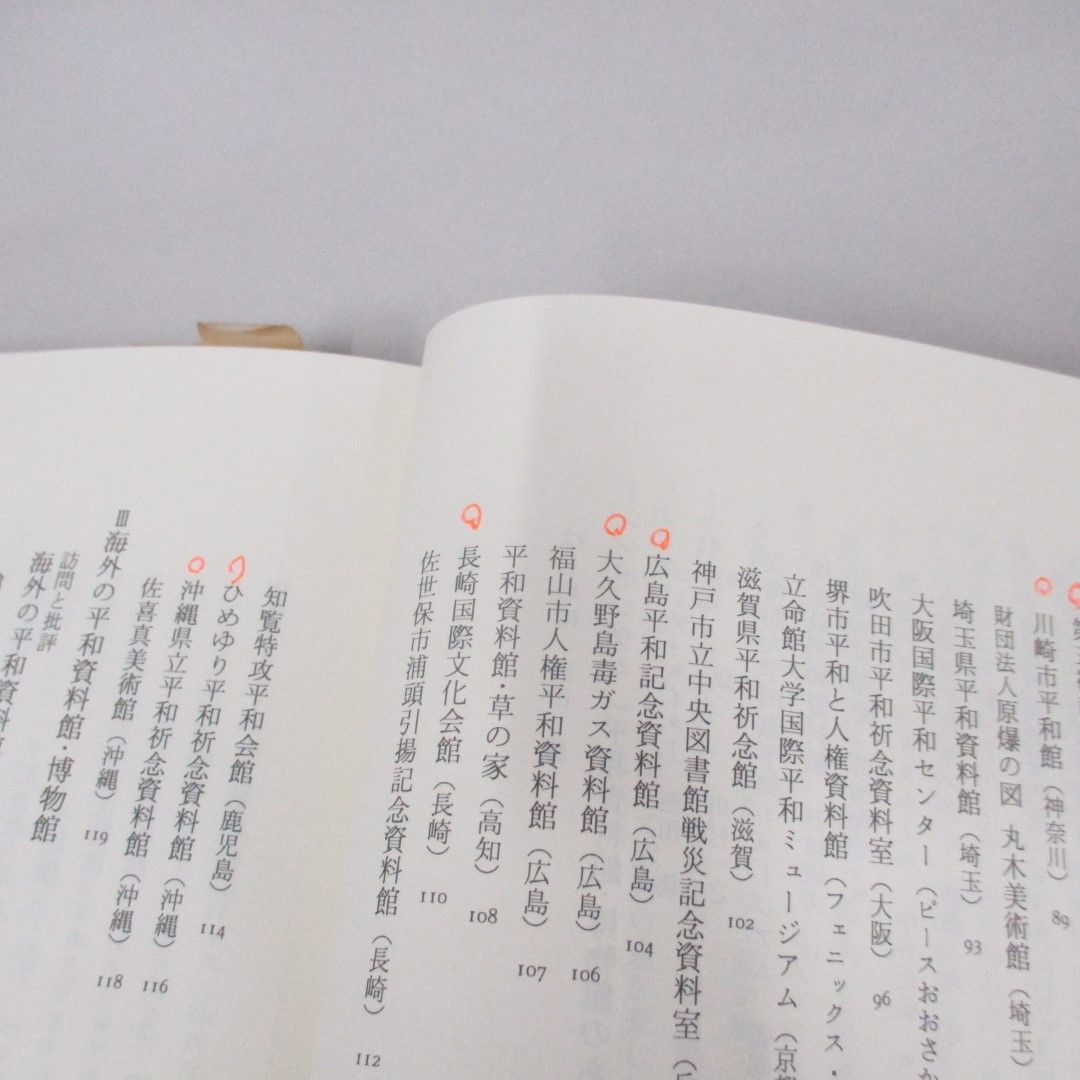 川崎市平和館（神奈川） 89
財団法人原爆の図 丸木美術館（埼玉）
埼玉県平和資料館（埼玉） 93
大阪国際平和センター（ピースおおさか
吹田市平和祈念資料室（大阪） 96
堺市平和と人権資料館（フェニックス・
立命館大学国際平和ミュージアム（京都
滋賀県平和祈念館（滋賀） 102
神戸市立中央図書館戦災記念資料室（
広島平和記念資料館（広島） 104
大久野島毒ガス資料館（広島） 106
福山市人権平和資料館（広島） 107
平和資料館・草の家（高知） 108
長崎国際文化会館（長崎） 110
佐世保市浦頭引揚記念資料館（長崎） 112
知覧特攻平和会館（鹿児島） 114
ひめゆり平和祈念資料館（沖縄） 116
沖縄県立平和祈念資料館（沖縄） 118
佐喜真美術館（沖縄） 119
Ⅲ 海外の平和資料館・博物館
訪問と批評
海外の平和資料館